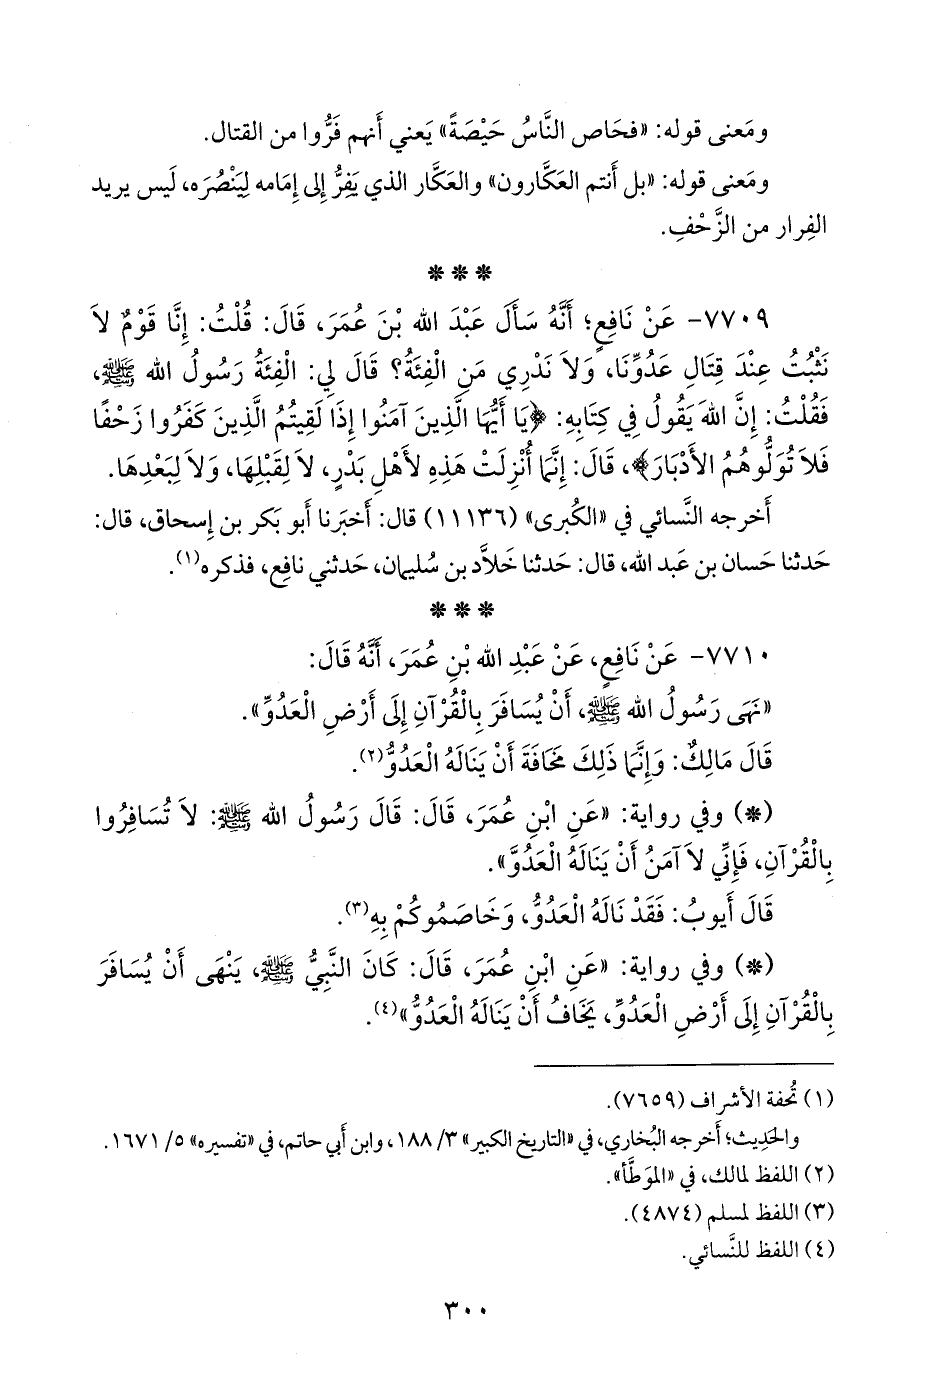 ومَعنى قوله: «فحَاص النَّاسُ حَيْصَةً» يَعني أَنهم فَرُّوا من القتال.
ومَعنى قوله: «بل أَنتم العَكَّارون» والعَكَّار الذي يَفِرُّ إِلى إِمَامه لِيَنْصُرَه، لَيس يريد
الفِرار من الزَّحْفِ.
* * *
٧٧٠٩- عَنْ نَافِعٍ؛ أَنَّهُ سَأَلَ عَبْدَ الله بْنَ عُمَرَ، قَالَ: قُلْتُ: إِنَّا قَوْمٌ لاَ
نَثْبُتُ عِنْدَ قِتَالِ عَدُوِّنَا، وَلاَ نَدْرِي مَنِ الْفِئَةُ؟ قَالَ لِي: الْفِئَةُ رَسُولُ الله ﷺ،
فَقُلْتُ: إِنَّ اللهَ يَقُولُ فِي كِتَابِهِ: ﴿يَا أَيُّهَا الَّذِينَ آمَنُوا إِذَا لَقِيتُمُ الَّذِينَ كَفَرُوا زَحْفًا
فَلاَ تُوَلُّوهُمُ الأَدْبَارَ﴾، قَالَ: إِنَّمَا أُنْزِلَتْ هَذِهِ لأَهْلِ بَدْرٍ، لاَ لِقَبْلِهَا، وَلاَ لِبَعْدِهَا.
أَخرجه النَّسائي في «الكُبرى» (١١١٣٦) قال: أَخبَرنا أَبو بَكر بن إِسحاق، قال:
حَدثنا حَسان بن عَبد الله، قال: حَدثنا خَلاَّد بن سُليمان، حَدثني نافِع، فذكره(١).
* * *
٧٧١٠- عَنْ نَافِعٍ، عَنْ عَبْدِ الله بْنِ عُمَرَ، أَنَّهُ قَالَ:
«نَهَى رَسُولُ الله ﷺ، أَنْ يُسَافَرَ بِالْقُرْآنِ إِلَى أَرْضِ الْعَدُوِّ».
قَالَ مَالِكٌ: وَإِنَّمَا ذَلِكَ مَخَافَةَ أَنْ يَنَالَهُ الْعَدُوُّ(٢).
(*) وفي رواية: «عَنِ ابْنِ عُمَرَ، قَالَ: قَالَ رَسُولُ الله ﷺ: لاَ تُسَافِرُوا
بِالْقُرْآنِ، فَإِنِّي لاَ آمَنُ أَنْ يَنَالَهُ الْعَدُوُّ».
قَالَ أَيوبُ: فَقَدْ نَالَهُ الْعَدُوُّ، وَخَاصَمُوكُمْ بِهِ(٣).
(*) وفي رواية: «عَنِ ابْنِ عُمَرَ، قَالَ: كَانَ النَّبِيُّ ﷺ، يَنْهَى أَنْ يُسَافَرَ
بِالْقُرْآنِ إِلَى أَرْضِ الْعَدُوِّ، يَخَافُ أَنْ يَنَالَهُ الْعَدُوُّ»(٤).
(١) تُحفة الأشراف (٧٦٥٩).
والحَدِيث؛ أَخرجه البُخاري، في «التاريخ الكبير» ٣/ ١٨٨، وابن أَبي حاتم، في «تفسيره» ٥/ ١٦٧١.
(٢) اللفظ لمالك، في «الموَطَّأ».
(٣) اللفظ لمسلم (٤٨٧٤).
(٤) اللفظ للنَّسائي.
٣٠٠